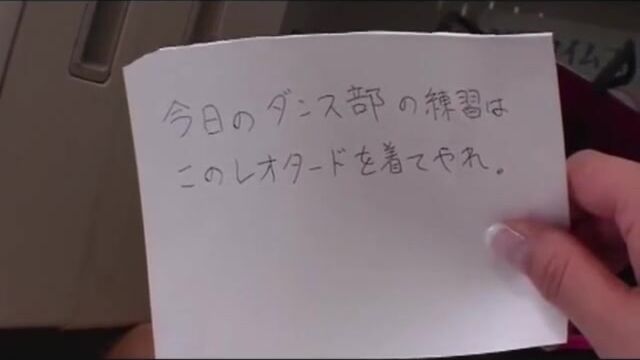 今日のダンス部の練習は
このレオタードを着てやれ。